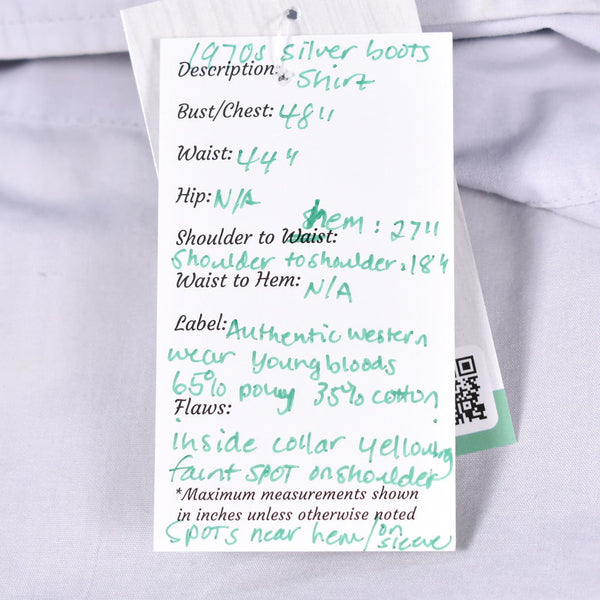 1970s silver boots
Description: Shirt
Bust/Chest: 48"
Waist: 44"
Hip: N/A
hem: 27"
Shoulder to Waist:
Shoulder to shoulder: 18"
Waist to Hem: N/A
Label: Authentic western
wear youngbloods
65% poly 35% cotton
Flaws:
inside collar yellowing
faint spot on shoulder
*Maximum measurements shown
in inches unless otherwise noted
spots near hem/on
sleeve